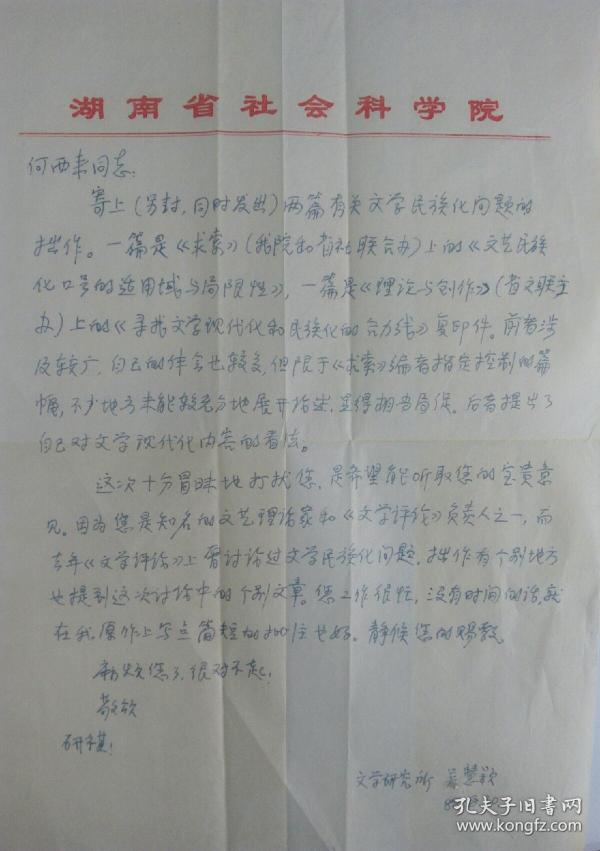 湖南省社会科学院
何西来同志：
寄上（另封，同时发出）两篇有关文学民族化问题的
拙作。一篇是《求索》（我院和省社联合办）上的《文艺民族
化口号的适用域与局限性》，一篇是《理论与创作》（省文联主
办）上的《寻找文学现代化和民族化的合力线》复印件。前者涉
及较广，自己的体会也较多，但限于《求索》编者指定控制的篇
幅，不少地方未能较充分地展开论述，显得相当局促。后者提出了
自己对文学现代化内容的看法。
这次十分冒昧地打扰您，是希望能听取您的宝贵意
见。因为您是知名的文艺理论家和《文学评论》负责人之一，而
去年《文学评论》上曾讨论过文学民族化问题，拙作有个别地方
也提到这次讨论中的个别文章。您工作很忙，没有时间的话，就
在我原作上写点简短的批注也好。静候您的赐教。
麻烦您了，很对不起！
敬颂
研祺！
文学研究所 吴慧颖
孔夫子旧书网
www.kongfz.com